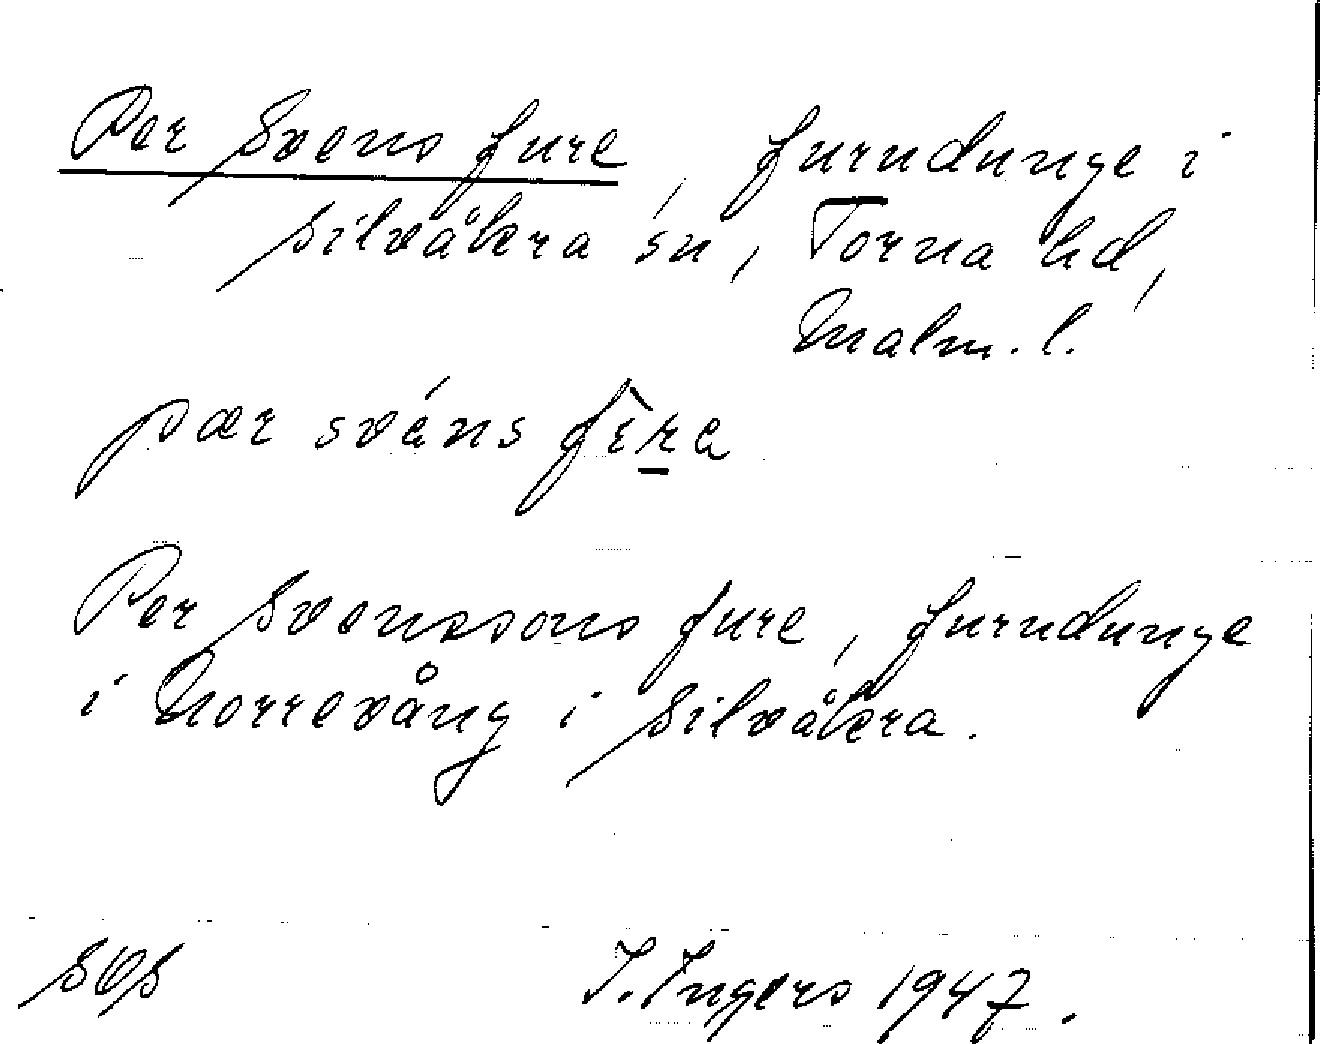 Per Svens fure, furudunge i
Silvåkra sn, Torna hd,
Malm. l.
pær svǽns fìra
Per Svenssons fure, furudunge
i Norrevång i Silvåkra.
I. Ingers 1947.